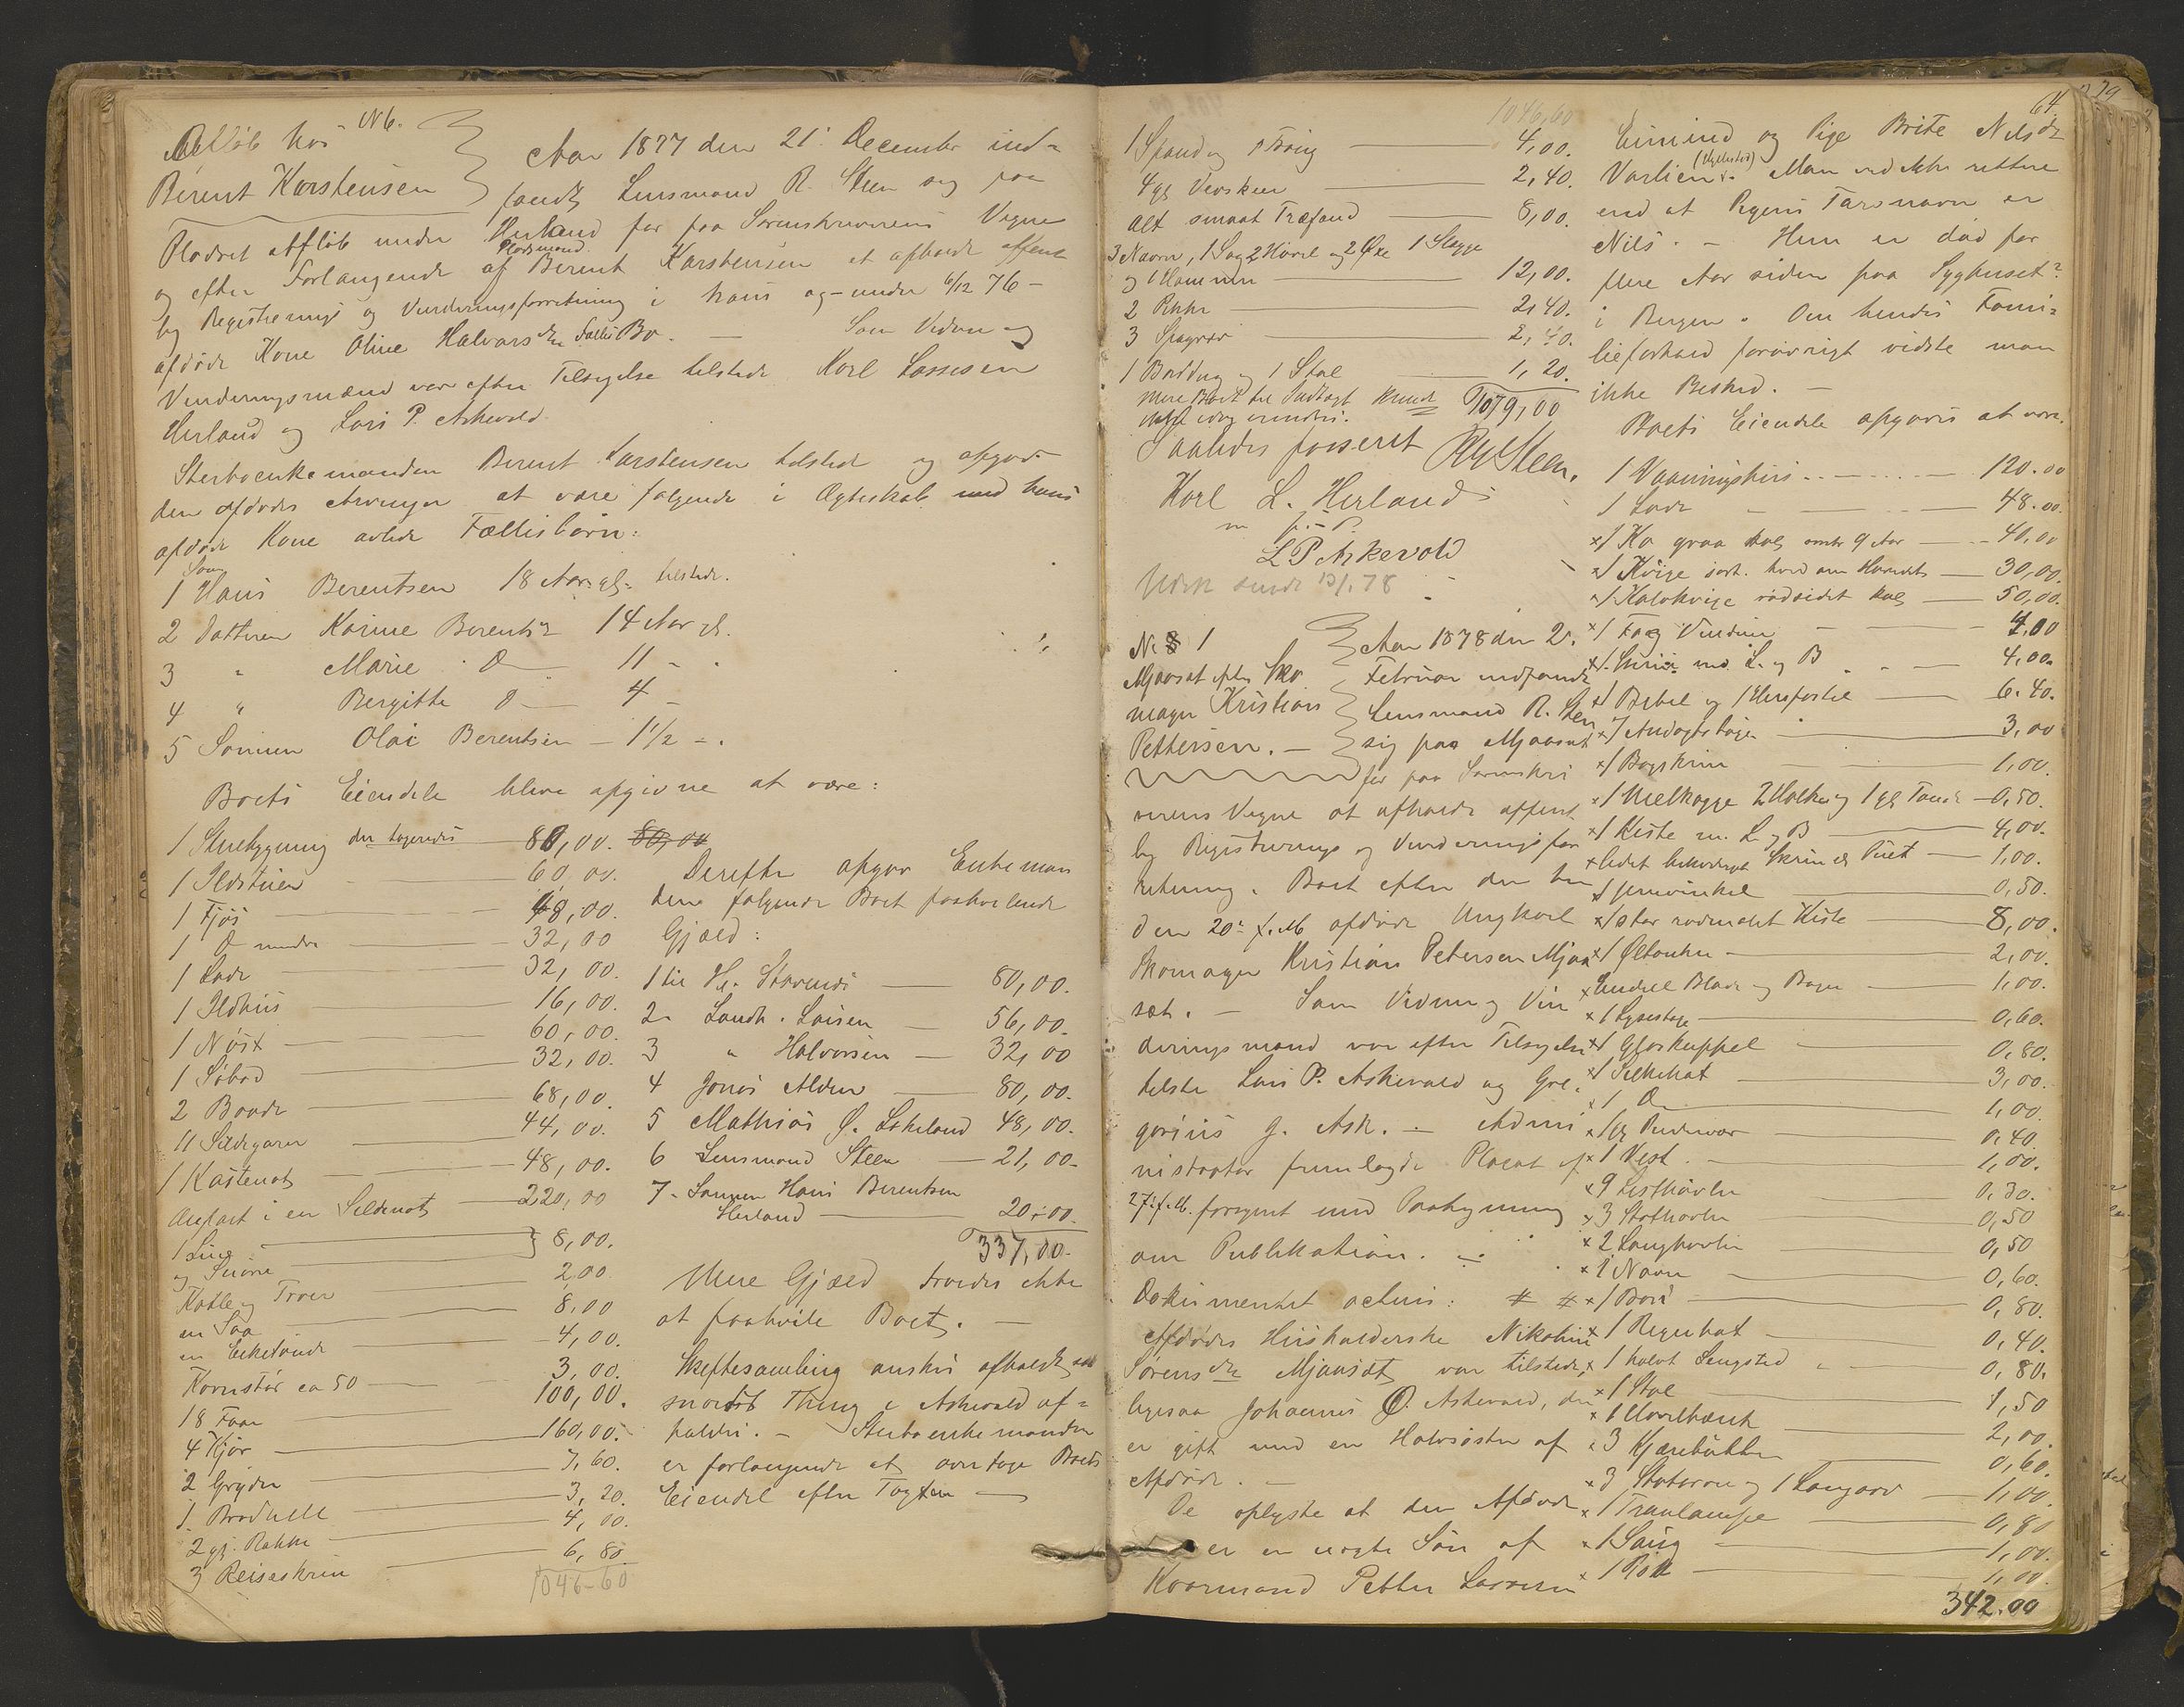 N 6.
Afløb hos
Berent Karstensen
Aar 1877 den 21. December ind-
fandt Lensmand R. Steen sig paa
Pladset Afløb under Herland for paa Sorenskriverens Vegne
og efter Forlangende af Pladsmand Berent Karstensen at afholde offent
lig Registrerings og Vurderingsforretning i hans og - under 6/12 76 -
afdøde Kone Oline Halvorsdr Fælles Bo. - Som Vidner og
Vurderingsmænd var efter Tilsigelse tilstede Karl Lassesen
Herland og Lars P. Askevold.
Sterboenkemanden Berent Karstensen tilstede og opgav
den afdødes Arvinger at være følgende i Ægteskab med hans
afdøde Kone avlede Fællesbørn:
1 Søn Hans Berentsen 18 Aar gl. tilstede.
2 Datteren Karine Berentsd 14 Aar gl.
3 " Marie Do 11 -
4 " Bergitte Do 4 -
5 Sønnen Olai Berentsen - 1 1/2 -.
Boets Eiendele bleve opgivne at være:
1 Stuebygning der tageredes 80,00. 80,00
1 Ildstuen 60,00.
1 Fjøs 48,00.
1 Do mindre 32,00
1 Lade 32,00.
1 Ildhus 16,00.
1 Nøst 60,00.
1 Søbod 32,00.
2 Baade 68,00.
11 Sildegarn 44,00.
1 Kastenot 48,00.
Anpart i en Sildenot 220,00
1 Line
og Snøre 8,00.
Kobley Traer 2,00
en Saa 8,00
en Eiketønde 4,00.
Kornstør ca 50 3,00.
18 Faar 100,00.
4 Kjør 160,00.
2 Gryder 7,60.
1 Brødhelle 3,20.
2 gj. Rokke 4,00.
3 Reiseskrin 6,80.
1046-60
Derefter opgav Enkeman
den følgende Boet paahvilende
Gjæld:
1 til H. Stavenes 80,00.
2 - Landh. Larsen 56,00.
3 " Halvorsen 32,00
4 Jonas Alden 80,00.
5 Mathias O. Askeland 48,00.
6 Lensmand Steen 21,00-
7 - Sønnen Hans Berentsen
Herland 20,00.
337,00.
Mere Gjæld troedes ikke
at paahvile Boet. -
Skiftesamling ønskes afholdt ved
snarest Thing i Askevold af-
holdes. - Sterboenkemanden
er forlangende at overtage Boets
Eiendele efter Taxten -
1046,60
1 Spand og 1 Traug 4,00.
4 gl Vevskeer 2,40.
Alt smaat Træfand 8,00.
3 Naavre, 1 Sag 2 Høvel og 2 Øxe 1 Slegge
og 1 Hammer 12,00.
2 Pikke 2,40.
3 Spegrør 2,40.
1 Borddug og 1 Stol 1,20.
mere Boet til Indtægt kunde 1079,00
ikke idag erindres.
Saaledes passeret R Steen.
Karl L. Herland
m. p. P.
L P Askevold
Udsk. sendt 13/1. 78
N. 1
Mjaaset efter Sko
mager Kristian
Pettersen. -
Aar 1878 den 2.
Februar indfandt
Lensmand R. Steen
sig paa Mjaaset
for paa Sorenskri
verens Vegne at afholde offent
lig Registrerings og Vurderingsfor
retning i Boet efter den her
den 20. f. M. afdøde Ungkarl
Skomager Kristian Petersen Mjaa
set. - Som Vidner og Vur
deringsmænd var efter Tilsigelse
tilste Lars P. Askevold og Gre-
gorius G. Ask. - Admi
nistrator fremlagde Placat af
27. f. M. forsynet med Paategning
om Publikation. -
Dokumentet acteris: # #
Afdødes Husholderske Nikoline
Sørensdr Mjaaset var tilstede,
ligesaa Johannes O. Askevold, der
er gift med en Halvsøster af
Afdøde. -
De oplyste at den Afdøde
er en uægte Søn af
Kaarmand Petter Larsen
64.
Eimind og Pige Brite Nilsdr
Varlien (Hyllestad). Man ved ikke rettere
end at Pigens Farsnavn er
Nils. - Hun er død for
flere Aar siden paa Sygehuset?
i Bergen. Om hendes Fami-
lieforhold forøvrigt vidste man
ikke Besked. -
Boets Eiendele opgaves at være.
1 Vaaningshus 120.00
1 Lade 48.00.
x 1 Ko graa kol omtr 9 Aar 40,00
x 1 Kvige sort. hvid om Hovedet 30,00.
x 1 Kalvkvige rødsidet kol 50,00.
x 1 Faag Vindue 4,00
x 1 Skrin med L. og B. 4,00.
x 1 Bibel og 1 Huspostil 6.40.
x 7 Andagtsbøger 3,00
x 1 Bogskrin 1,00.
x 1 Melkogge 2 Holker og 1 gl Tønde 0,50.
x 1 Kiste m. L. og B 4,00.
x lidet beskadiget Skrin og Puet 1,00.
x 1 Jernvinkel 0,50.
x 1 stor rødmalet Kiste 8,00.
x 1 Øltønke 2,00.
x Endel Blade og Bøger 1,00.
x 1 Lysestage 0,60.
x 1 Glaskuppel 0,80.
x 1 Silkehat 3,00.
x 1 Do 1,00.
x 1 gl Pudevar 0,40.
x 1 Vest 1,00.
x 9 Listhøvler 0,30.
x 3 Slethøvler 0,50
x 2 Langhøvler 0,50
x 1 Navar 0,60.
x 1 Bord 0,80.
x 1 Regnhat 0,40.
x 1 halvt Sengsted 0,80.
x 1 Stol 1,50
x 1 Høvelbænk 2,00.
x 3 Kjærebøtter 0,60.
x 3 Stutorve og 1 Langorv 1,00.
x 1 Tranlampe 0,80
x 1 Saug 1,00.
x 1 Rok 1,00.
342.00